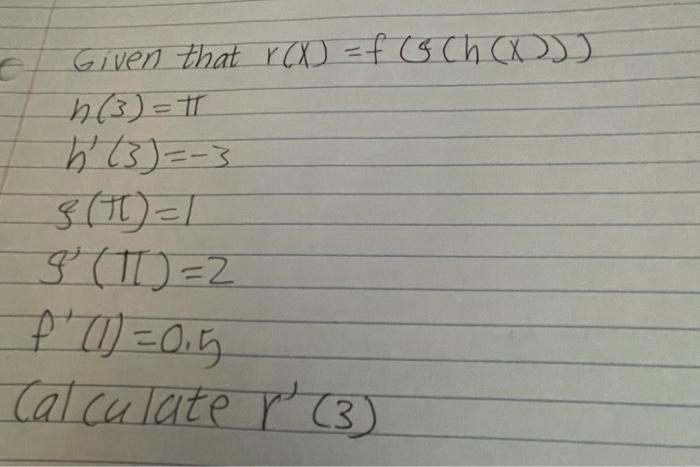 Given that r(x) = f(g(h(x)))
h(3) = π
h'(3) = -3
g(π) = 1
g'(π) = 2
f'(1) = 0.5
Calculate r'(3)